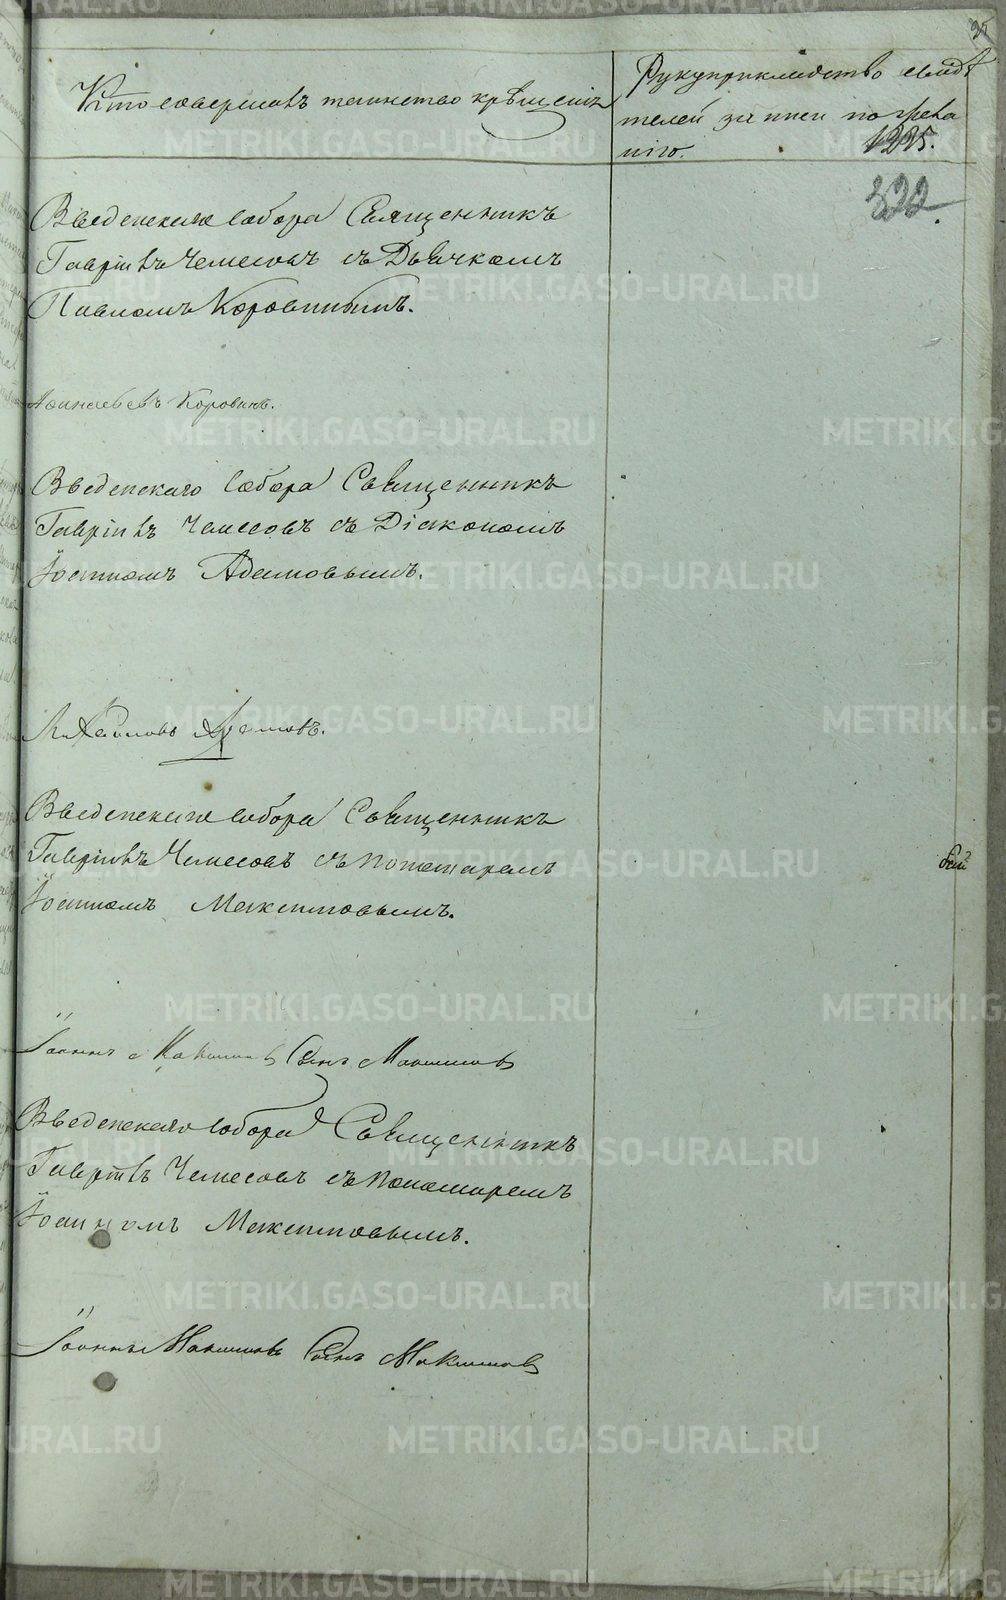 35
Кто совершалъ таинство крѣщенія
Рукуприкладство свидѣ
телей записи по жела
нію.
1225.
322
Введенскаго собора Священникъ
Гавріилъ Чемесовъ съ Дьячкомъ
Павломъ Коровинымъ.
Коровинъ.
Введенскаго собора Священникъ
Гавріилъ Чемесовъ съ Діакономъ
Іоанномъ Адамовымъ.
Введенскаго собора Священникъ
Гавріилъ Чемесовъ съ пономаремъ
Іоанномъ Максимовымъ.
Іоаннъ Максимовъ Сынъ Максимовъ
Введенскаго собора Священникъ
Гавріилъ Чемесовъ съ пономаремъ
Іоанномъ Максимовымъ.
Іоаннъ Максимовъ Сынъ Максимовъ
METRIKI.GASO-URAL.RU